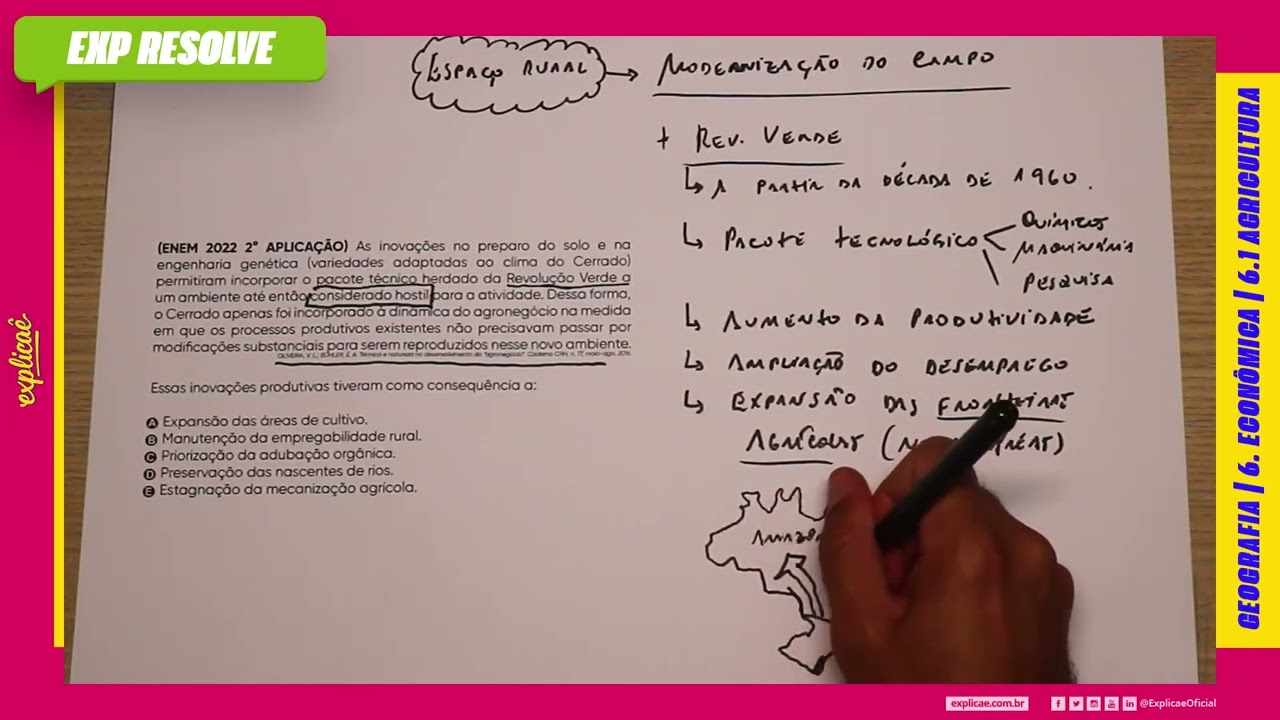 EXP RESOLVE
ESPAÇO RURAL
MODERNIZAÇÃO DO CAMPO
+ REV. VERDE
A PARTIR DA DÉCADA DE 1960.
PACOTE TECNOLÓGICO
QUÍMICOS
MAQUINÁRIA
PESQUISA
AUMENTO DA PRODUTIVIDADE
AMPLIAÇÃO DO DESEMPREGO
EXPANSÃO DAS FRONTEIRAS
AGRÍCOLAS
(ENEM 2022 2ª APLICAÇÃO) As inovações no preparo do solo e na
engenharia genética (variedades adaptadas ao clima do Cerrado)
permitiram incorporar o pacote técnico herdado da Revolução Verde a
um ambiente até então considerado hostil para a atividade. Dessa forma,
o Cerrado apenas foi incorporado à dinâmica do agronegócio na medida
em que os processos produtivos existentes não precisavam passar por
modificações substanciais para serem reproduzidos nesse novo ambiente.
Essas inovações produtivas tiveram como consequência a:
A Expansão das áreas de cultivo.
B Manutenção da empregabilidade rural.
C Priorização da adubação orgânica.
D Preservação das nascentes de rios.
E Estagnação da mecanização agrícola.
explicaê
GEOGRAFIA | 6. ECONÔMICA | 6.1 AGRICULTURA
explicae.com.br
@ExplicaeOficial